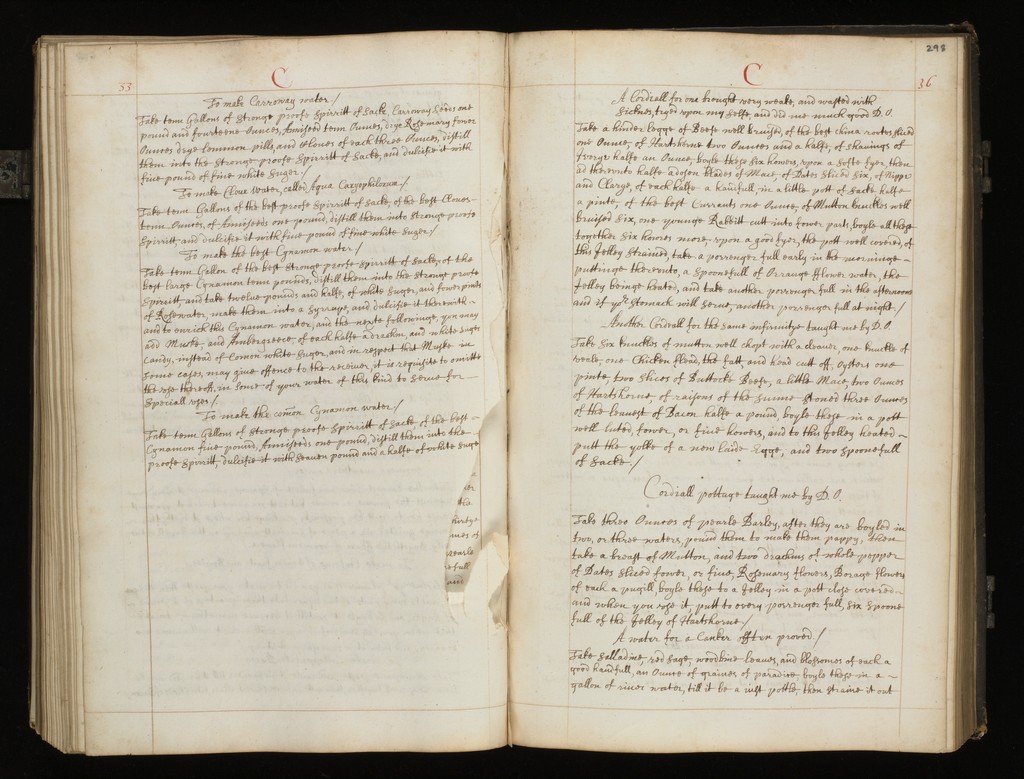 33
C
To make Carroway water /
Take tenn Gallons of Stronge proofe Spirritt of Sacke, Carroway Seeds one
pound and fourteene Ounces, Anniseed tenn Ounces, drye Rosemary fower
Ounces drye Lemmon pills, and Cloues of each three Ounces, distill
them into the stronge proofe Spirritt of Sacke, and dulcifie it with
fiue pound of fine white Suger /
To make Cloue Water, called Aqua Caryophilorum /
Take tenn Gallons of the best proofe Spirritt of Sacke, of the best Cloues
tenn Ounces, of Anniseeds one pound, distill them into stronge proofe
Spirritt, and dulcifie it with fiue pound of fine white Suger /
To make the best Cynamon water /
Take tenn Gallon of the best stronge proofe Spirritt of Sacke, of the
best large Cynamon tenn pounds, distill them into the stronge proofe
Spirritt, and take twelue pounds and halfe, of white Suger, and fower pints
of Rosewater, make them into a Syrrupe, and dulcifie it therewith
and to enrich this Cynamon water, and the next followinge you may
add Muske, and Ambergreece, of each halfe a drachm, and white Suger
Candy, instead of Comon white Suger, and in respect that Muske in
some cases, may giue offence to the receiuer, it is requisite to omitte
the vse thereoff, in some of your water of this kind to serue for
Speciall vses /
To make the comõn Cynamon water /
Take tenn Gallons of stronge proofe Spirritt of Sacke, of the best
Cynamon fiue pound, Anniseeds one pound, distill them into the
proofe Spirritt, dulcifie it with seauen pound and a halfe of white Suge
er
the
ines of
Pearle
efull
298
C
36
A Cordiall for one brought very weake, and wasted with
Sicknes, tryed vpon my selfe, and did me much good D.O.
Take a hinder Legge of Beefe well bruised, of the best china rootes sliced
one Ounce, of Hartshorne two Ounces and a halfe, of shauings of
Iuorye halfe an Ounce, boyle these six howers, vpon a softe fyer, then
ad therevnto halfe a dosen blades of Mace, of Dates sliced six, of Nipp
and Clarye, of each halfe a handfull, in a little pott of Sacke halfe
a pinte, of the best Currants one Ounce, of Mutton knuckles well
bruised six, one younge Rabbitt cutt into fower parts, boyle all these
together six howres more, vpon a good fyer, the pott well couered, of
this Jelley strained, take a porrenger full early in the morninge
puttinge therevnto, a spoonefull of Orrange flower water, the
Jelley beinge heated, and take another porrenger full in the afternoone
and if yor Stomack will serue, another porrenger full at night /
Another Cordiall for the same infirmitye taught me by D.O.
Take six knuckles of mutton well chopt with a cleauer, one knuckle of
veale, one Chicken flead, the fatt, and head cutt off, oysters one
pinte, two slices of Buttock Beefe, a little Mace, two Ounces
of Hartshorne, of raisons of the sunne stoned three Ounces
of the leanest of Bacon halfe a pound, boyle these in a pott
well luted, fower, or fiue howers, and to this Jelley heated
putt the yolke of a new laide Egge, and two spoonefull
of Sacke /
Cordiall pottage taught me by D.O.
Take three Ounces of pearle Barley, after they are boyled in
two, or three waters, pound them to make them pappy, then
take a breast of Mutton, and two drachms of whole pepper
of Dates sliced fower, or fiue, Rosemary flowers, Borage flowers
of each a pugill, boyle these to a Jelley in a pott close couered
and when you vse it, putt to euery porrenger full, six spoone
full of the Jelley of Hartshorne /
A water for a Canker offten proued /
Take Salladine, red sage, woodbine leaues, and blossomes of each a
good handfull, an Ounce of graines of paradice, boyle these in a
gallon of riuer water, till it be a iust pottle, then straine it out